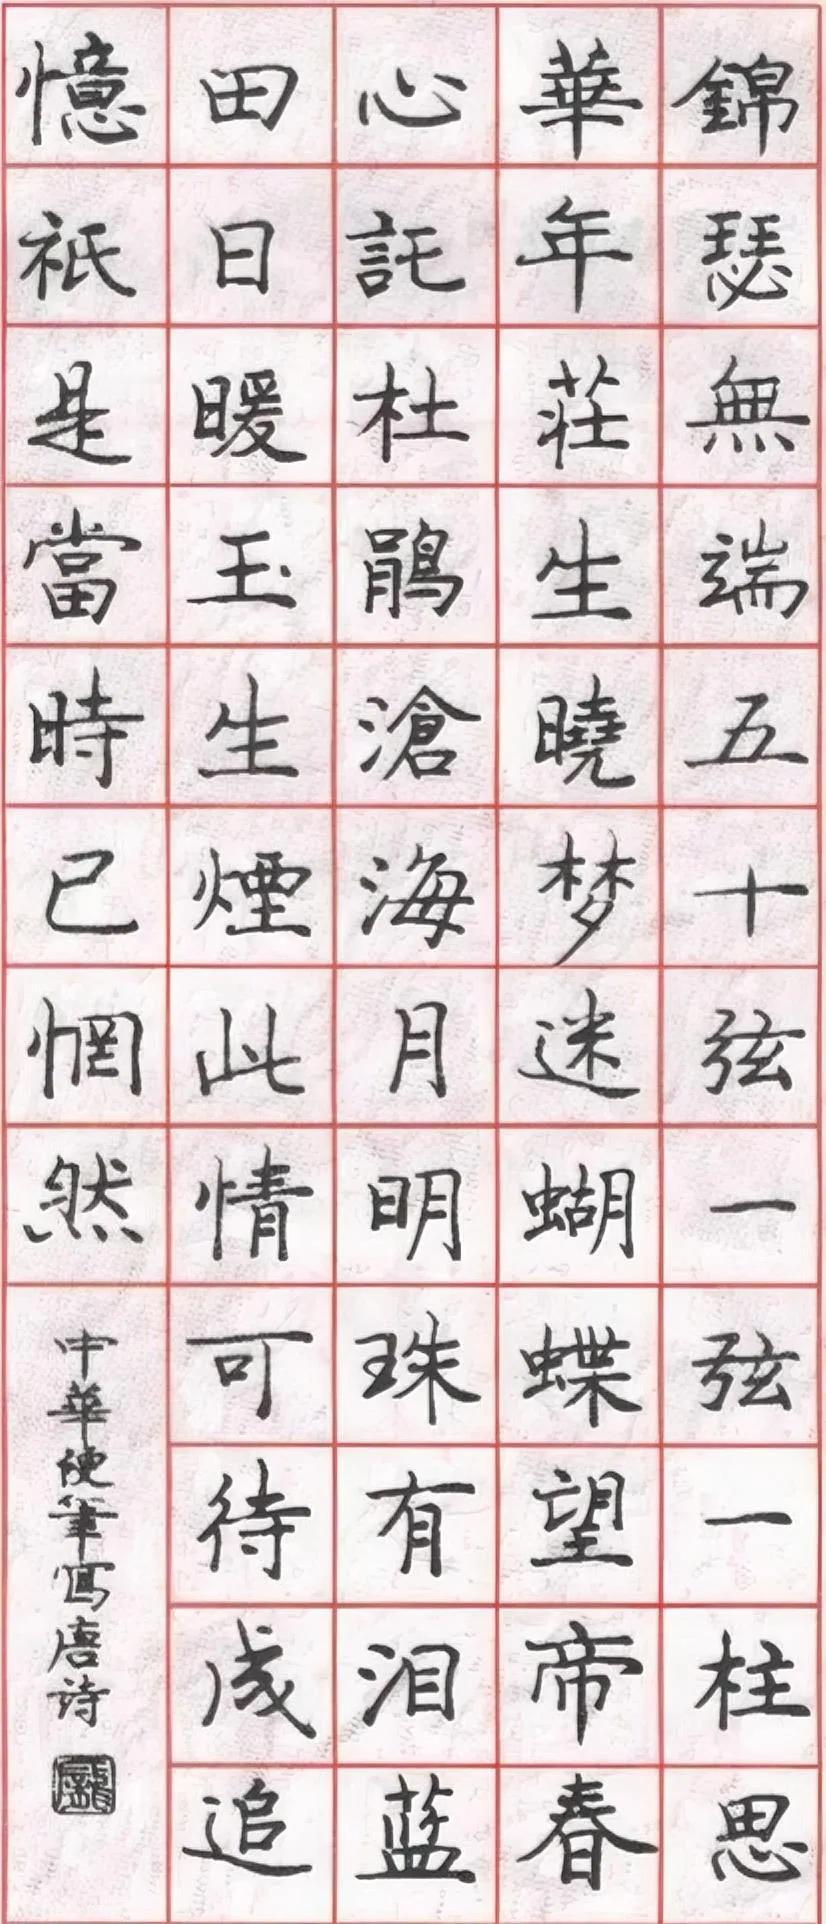 錦瑟無端五十弦一弦一柱思
華年莊生曉梦迷蝴蝶望帝春
心託杜鹃滄海月明珠有泪蓝
田日暖玉生煙此情可待成追
憶祇是當時已惘然
中華硬筆寫唐詩